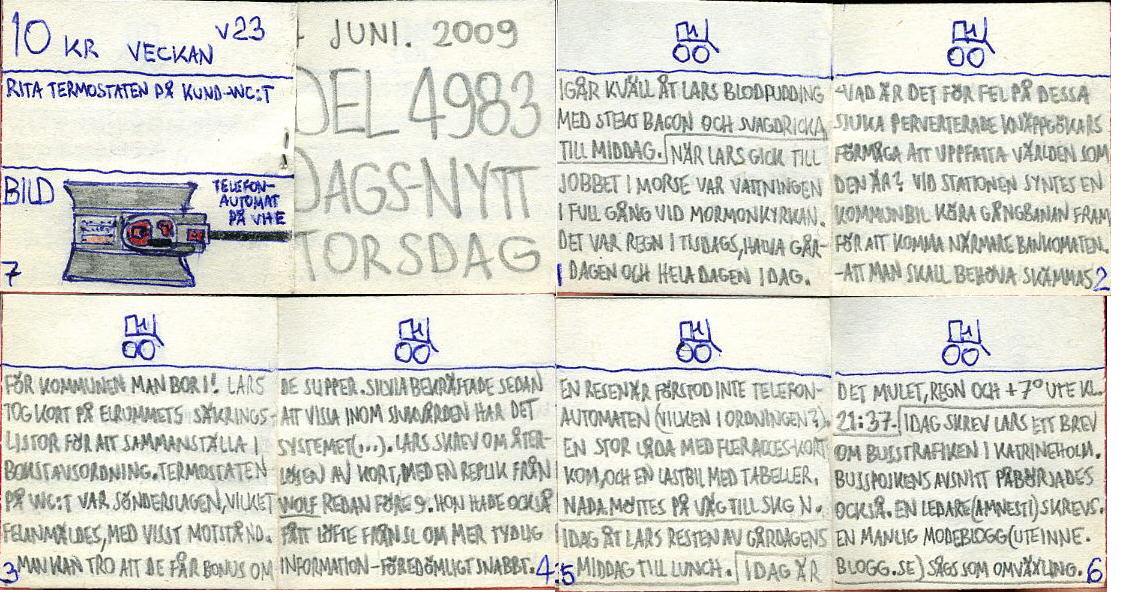 10 KR VECKAN v23
RITA TERMOSTATEN PÅ KUND-WC:T
BILD
TELEFON-
AUTOMAT
PÅ VHE
7
4 JUNI. 2009
DEL 4983
DAGS-NYTT
TORSDAG
IGÅR KVÄLL ÅT LARS BLODPUDDING
MED STEKT BACON OCH SVAGDRICKA
TILL MIDDAG. NÄR LARS GICK TILL
JOBBET I MORSE VAR VATTNINGEN
I FULL GÅNG VID MORMONKYRKAN.
DET VAR REGN I TISDAGS, HALVA GÅR-
DAGEN OCH HELA DAGEN IDAG.
1
-VAD ÄR DET FÖR FEL PÅ DESSA
SJUKA PERVERTERADE KNÄPPGÖKARS
FÖRMÅGA ATT UPPFATTA VÄRLDEN SOM
DEN ÄR? VID STATIONEN SYNTES EN
KOMMUNBIL KÖRA GÅNGBANAN FRAM
FÖR ATT KOMMA NÄRMARE BANKOMATEN.
-ATT MAN SKALL BEHÖVA SKÄMMAS
2
FÖR KOMMUNEN MAN BOR I! LARS
TOG KORT PÅ ELRUMMETS SÄKRINGS-
LISTOR FÖR ATT SAMMANSTÄLLA I
BOKSTAVSORDNING. TERMOSTATEN
PÅ WC:T VAR SÖNDERSLAGEN, VILKET
FELANMÄLDES, MED VISST MOTSTÅND.
MAN KAN TRO ATT DE FÅR BONUS OM
3
DE SLIPPER. SILVIA BEKRÄFTADE SEDAN
ATT VISSA INOM SJUKVÅRDEN HAR DET
SYSTEMET(...). LARS SKREV OM ÅTER-
LÖSEN AV KORT, MED EN REPLIK FRÅN
WOLF REDAN FÖRE 9. HON HADE OCKSÅ
FÅTT LÖFTE FRÅN SL OM MER TYDLIG
INFORMATION-FÖREDÖMLIGT SNABBT.
4
EN RESENÄR FÖRSTOD INTE TELEFON-
AUTOMATEN (VILKEN I ORDNINGEN?).
EN STOR LÅDA MED FLER ACCESS-KORT
KOM, OCH EN LASTBIL MED TABELLER.
NADA MÖTTES PÅ VÄG TILL SKG N.
IDAG ÅT LARS RESTEN AV GÅRDAGENS
MIDDAG TILL LUNCH. IDAG ÄR
5
DET MULET, REGN OCH +7° UTE KL.
21:37. IDAG SKREV LARS ETT BREV
OM BUSSTRAFIKEN I KATRINEHOLM.
BUSSPOJKENS AVSNITT PÅBÖRJADES
OCKSÅ. EN LEDARE (AMNESTI) SKREVS.
EN MANLIG MODEBLOGG (UTEINNE.
BLOGG.SE) SÅGS SOM OMVÄXLING.
6